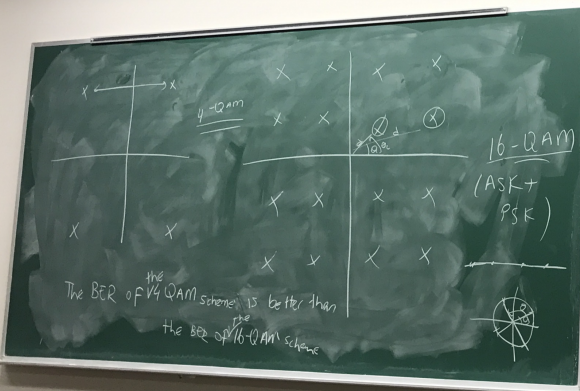 4-QAM
16-QAM
(ASK+
PSK)
d
The BER of the 4 QAM scheme is better than
the BER of the 16-QAM scheme